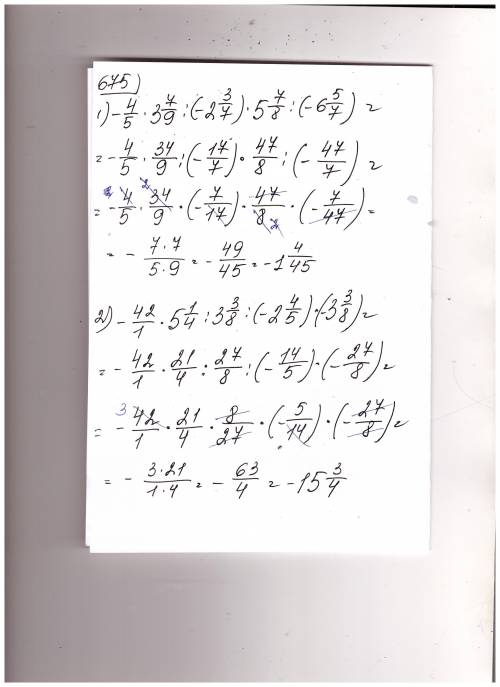 675)
1) -4/5 · 3 7/9 : (-2 3/7) · 5 7/8 : (-6 5/7) =
= -4/5 · 34/9 : (-17/7) · 47/8 : (-47/7) =
= -4/5 · 34/9 · (-7/17) · 47/8 · (-7/47) =
= - 7·7/5·9 = - 49/45 = -1 4/45
2) -42/1 · 5 1/4 : 3 3/8 : (-2 4/5) · (-3 3/8) =
= -42/1 · 21/4 : 27/8 : (-14/5) · (-27/8) =
= -42/1 · 21/4 · 8/27 · (-5/14) · (-27/8) =
= - 3·21/1·4 = - 63/4 = -15 3/4